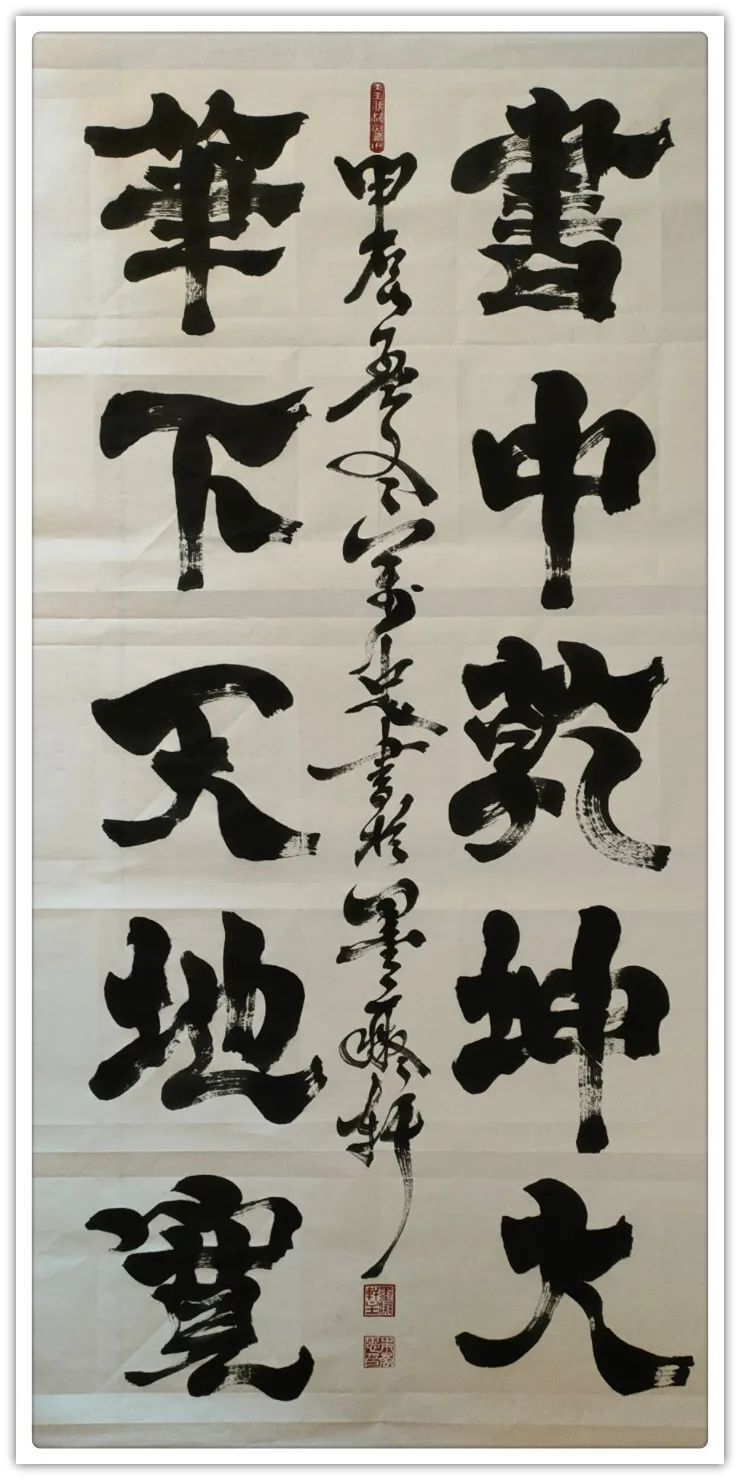 書中乾坤大
甲辰孟冬萬忠書於墨癡軒
筆下天地寬